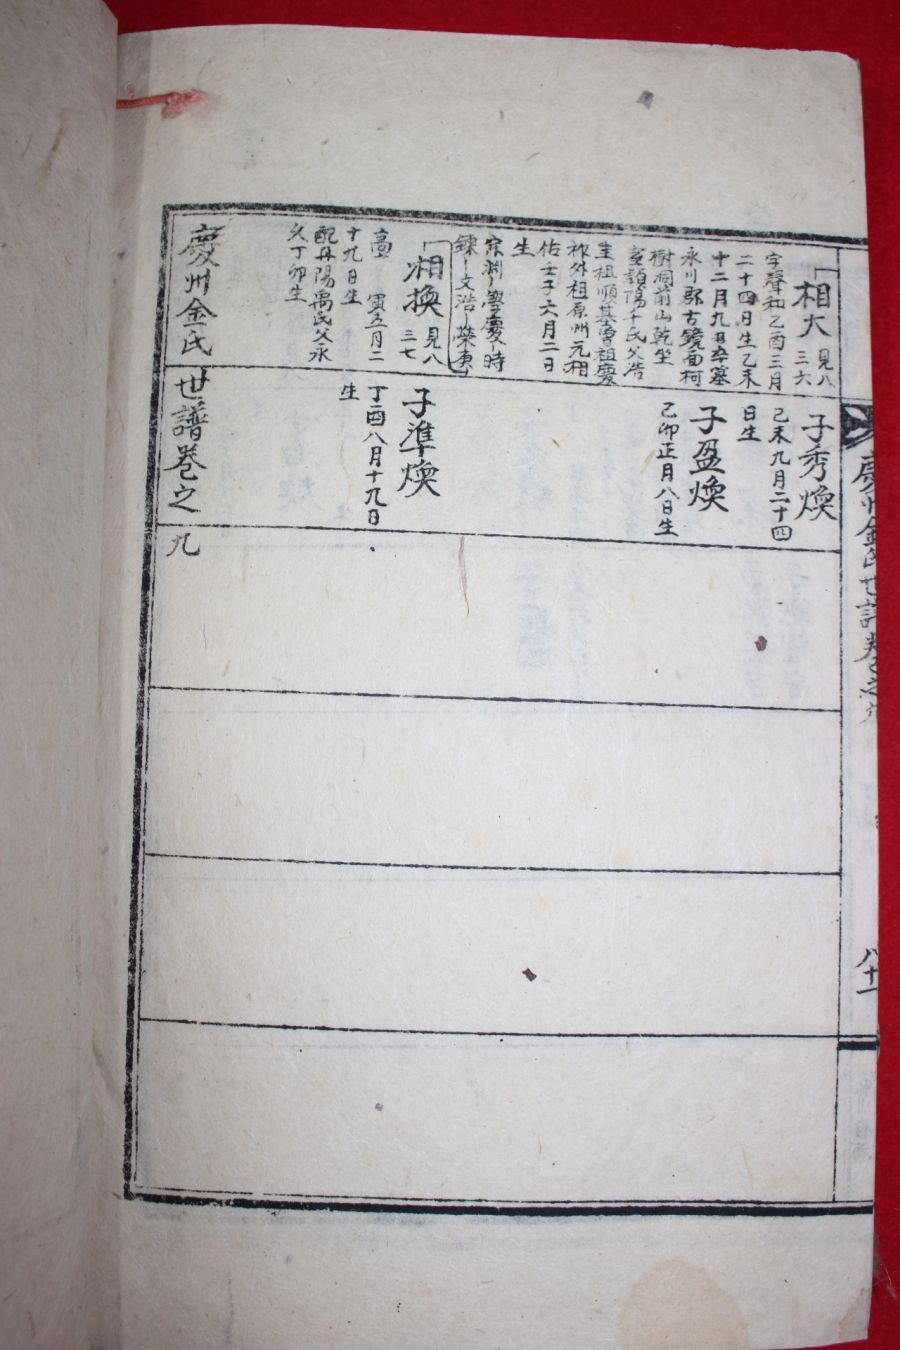 慶州金氏世譜卷之九
八十一
相大 見八 三六
字聲和乙酉三月
二十四日生乙未
十二月九日卒墓
永川郡古鏡面柯
樹洞前山乾坐
室潁陽千氏父浩
圭祖順基曾祖慶
祚外祖原州元相
佑士子六月二日
生
子秀煥
己未九月二十四
日生
子盈煥
己卯正月八日生
宗湖 學慶 時
鍊 文浩 榮
相換 見八 三七
寅五月二
十九日生
配丹陽禹氏父永
久丁卯生
子準煥
丁酉八月十九日
生
慶州金氏世譜卷之九